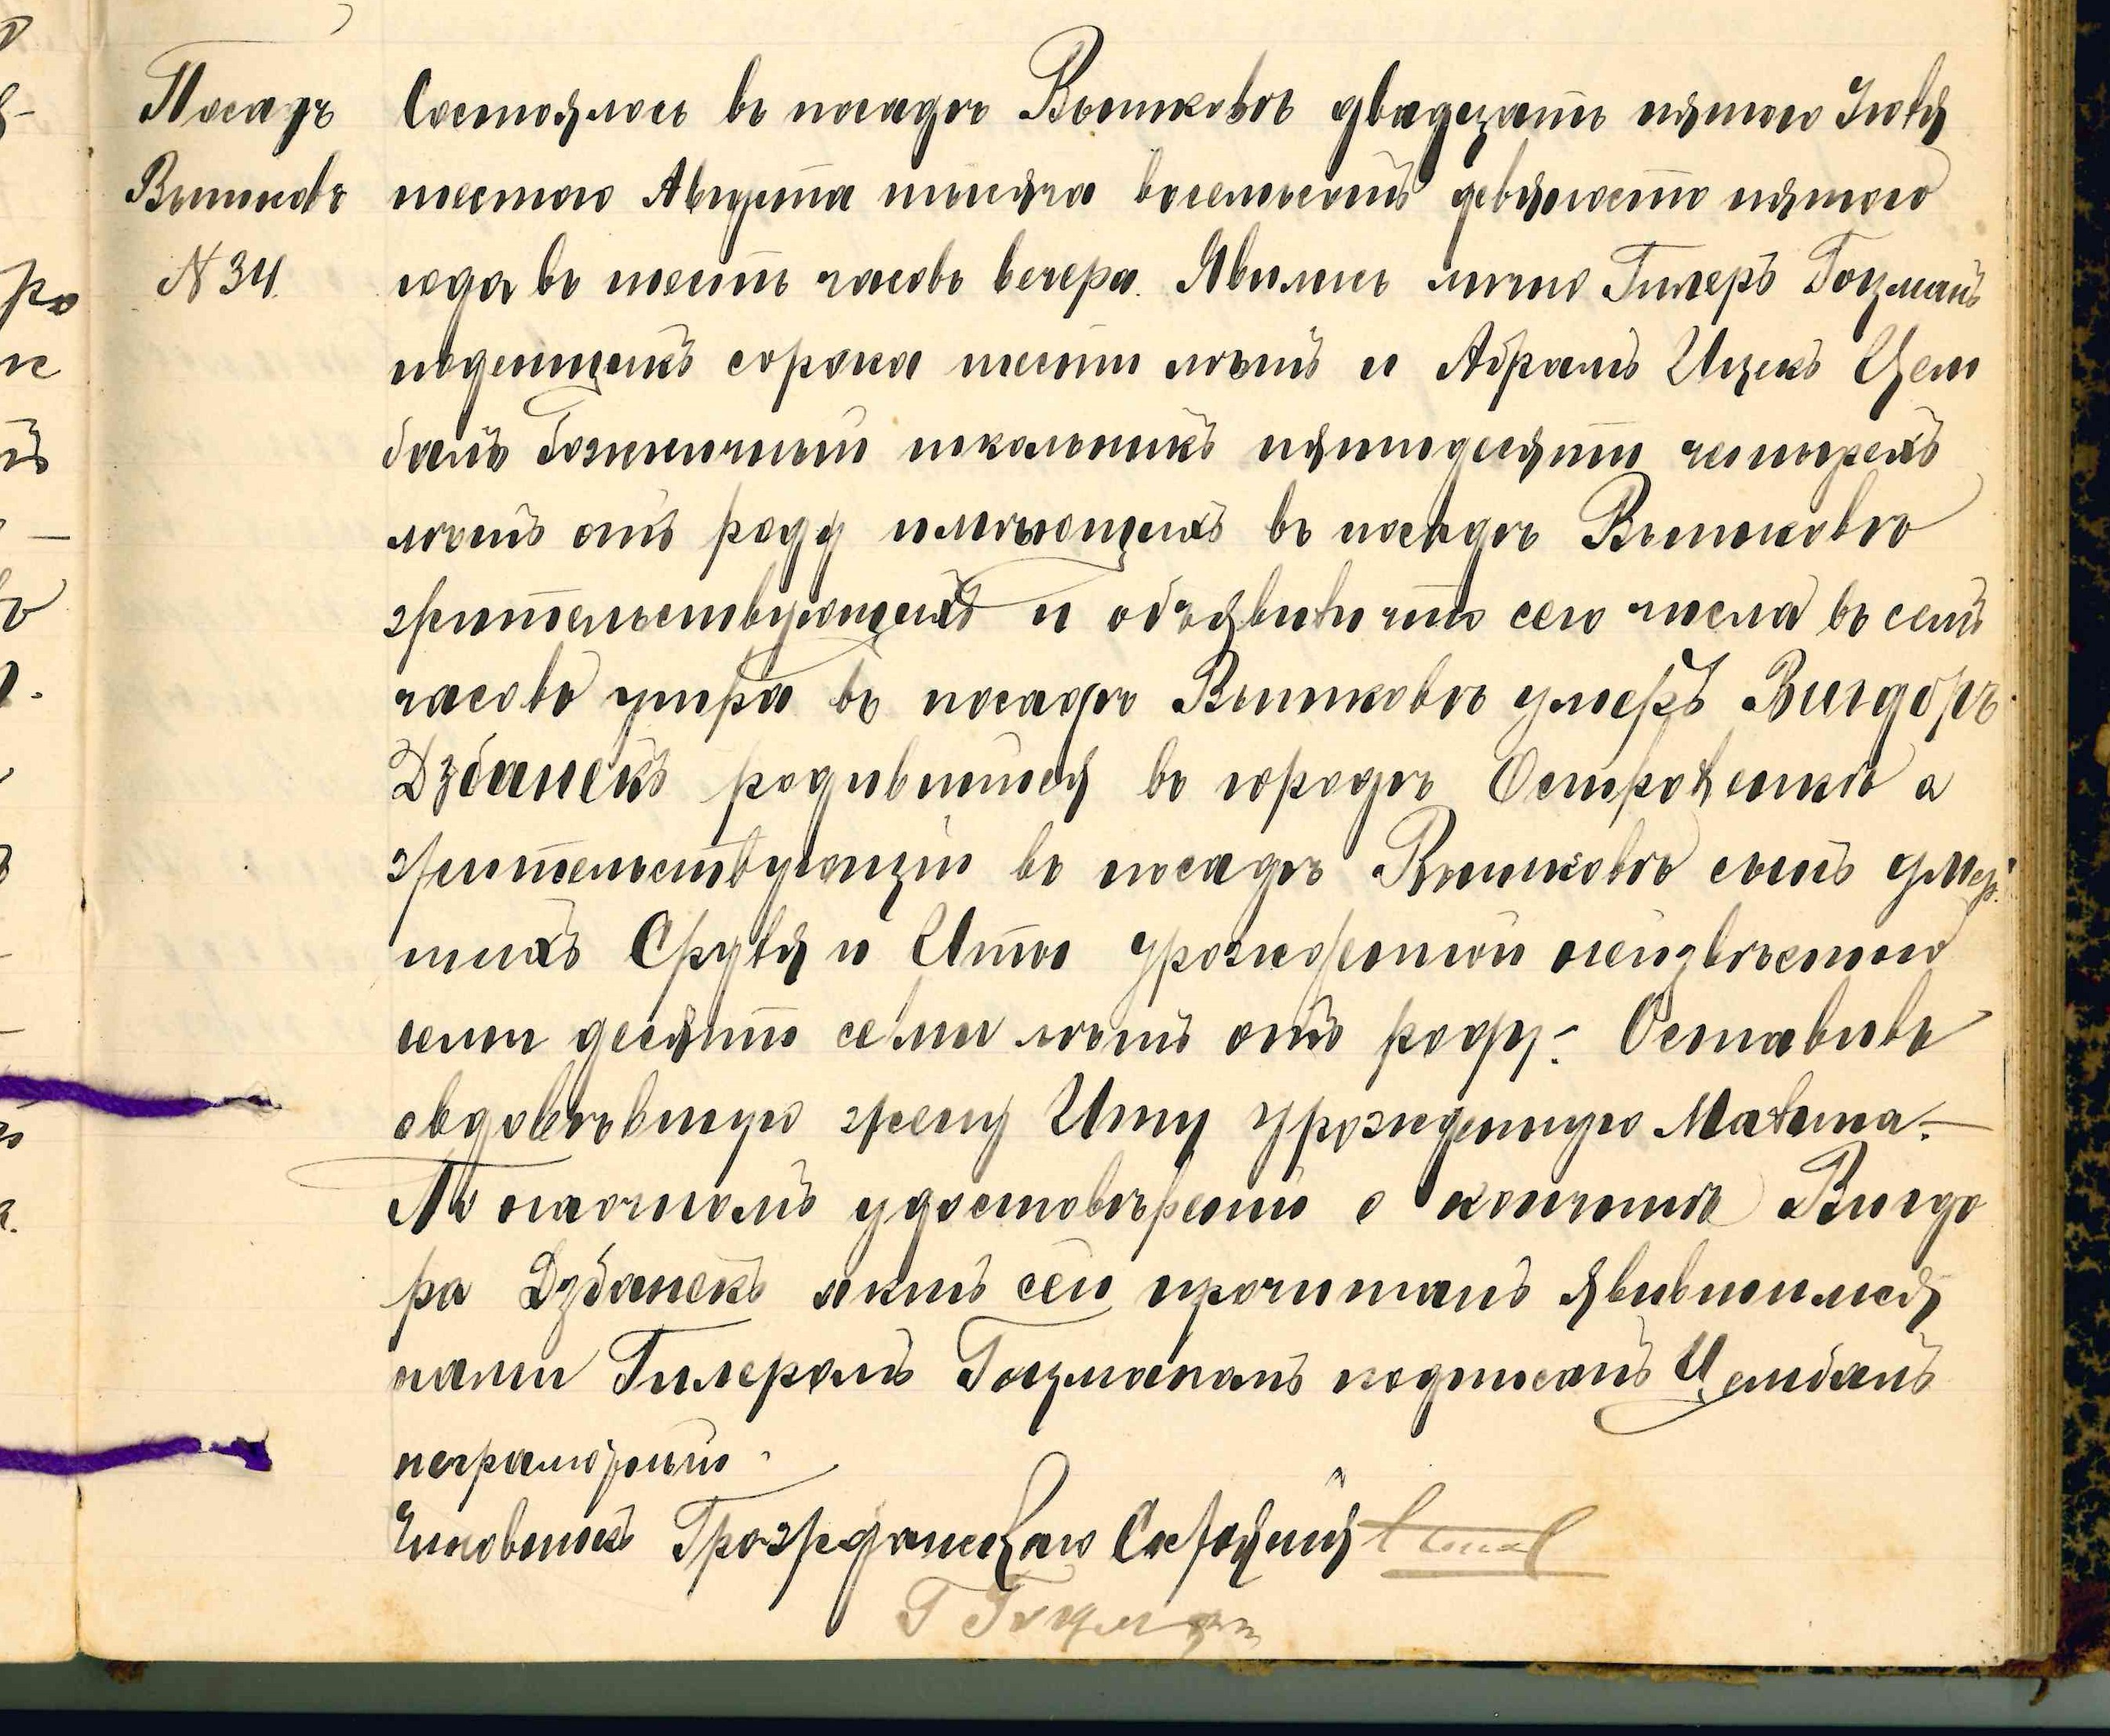 Посадъ
Вышковъ
N 34.
Состоялось въ посадѣ Вышковѣ двадцать пятого Іюля
шестого Августа тысяча восемьсотъ девяносто пятого
года въ шесть часовъ вечера. Явились лично Гилеръ Гоцманъ
поденщикъ сорока шести лѣтъ и Абрамъ Ицекъ Цем
банъ Божничный школьникъ пятидесяти четырехъ
лѣтъ отъ роду имѣющихъ въ посадѣ Вышковѣ
жительствующихъ и объявили что сего числа въ семь
часовъ утра въ посадѣ Вышковѣ умеръ Вигдоръ
Дзбанекъ родившійся въ городѣ Остроленкѣ а
жительствующій въ посадѣ Вышковѣ сынъ умер
шихъ Сруля и Иты урожденной неизвѣстной
семи десяти семи лѣтъ отъ роду. Оставивъ
овдовѣвшую жену Иту урожденную Малина.
По наочномъ удостовѣреніи о кончинѣ Вигдо
ра Дзбанекъ актъ сей прочитанъ явившимися
нами Гилеромъ Гоцманомъ подписанъ Цембанъ
неграмотный.
Чиновникъ Гражданскаго Состоянія
Г Гоцман